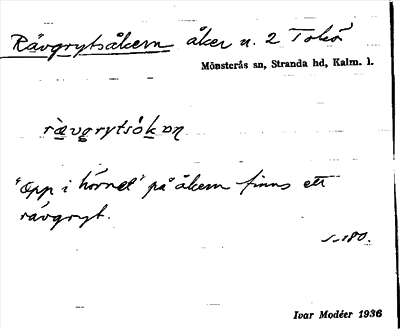 Rävgrytsåkern åker n. 2 Tokö
Mönsterås sn, Stranda hd, Kalm. l.
rävgrytsåkən
"Opp i hörnet" på åkern finns ett
rävgryt.
s. 180.
Ivar Modéer 1936